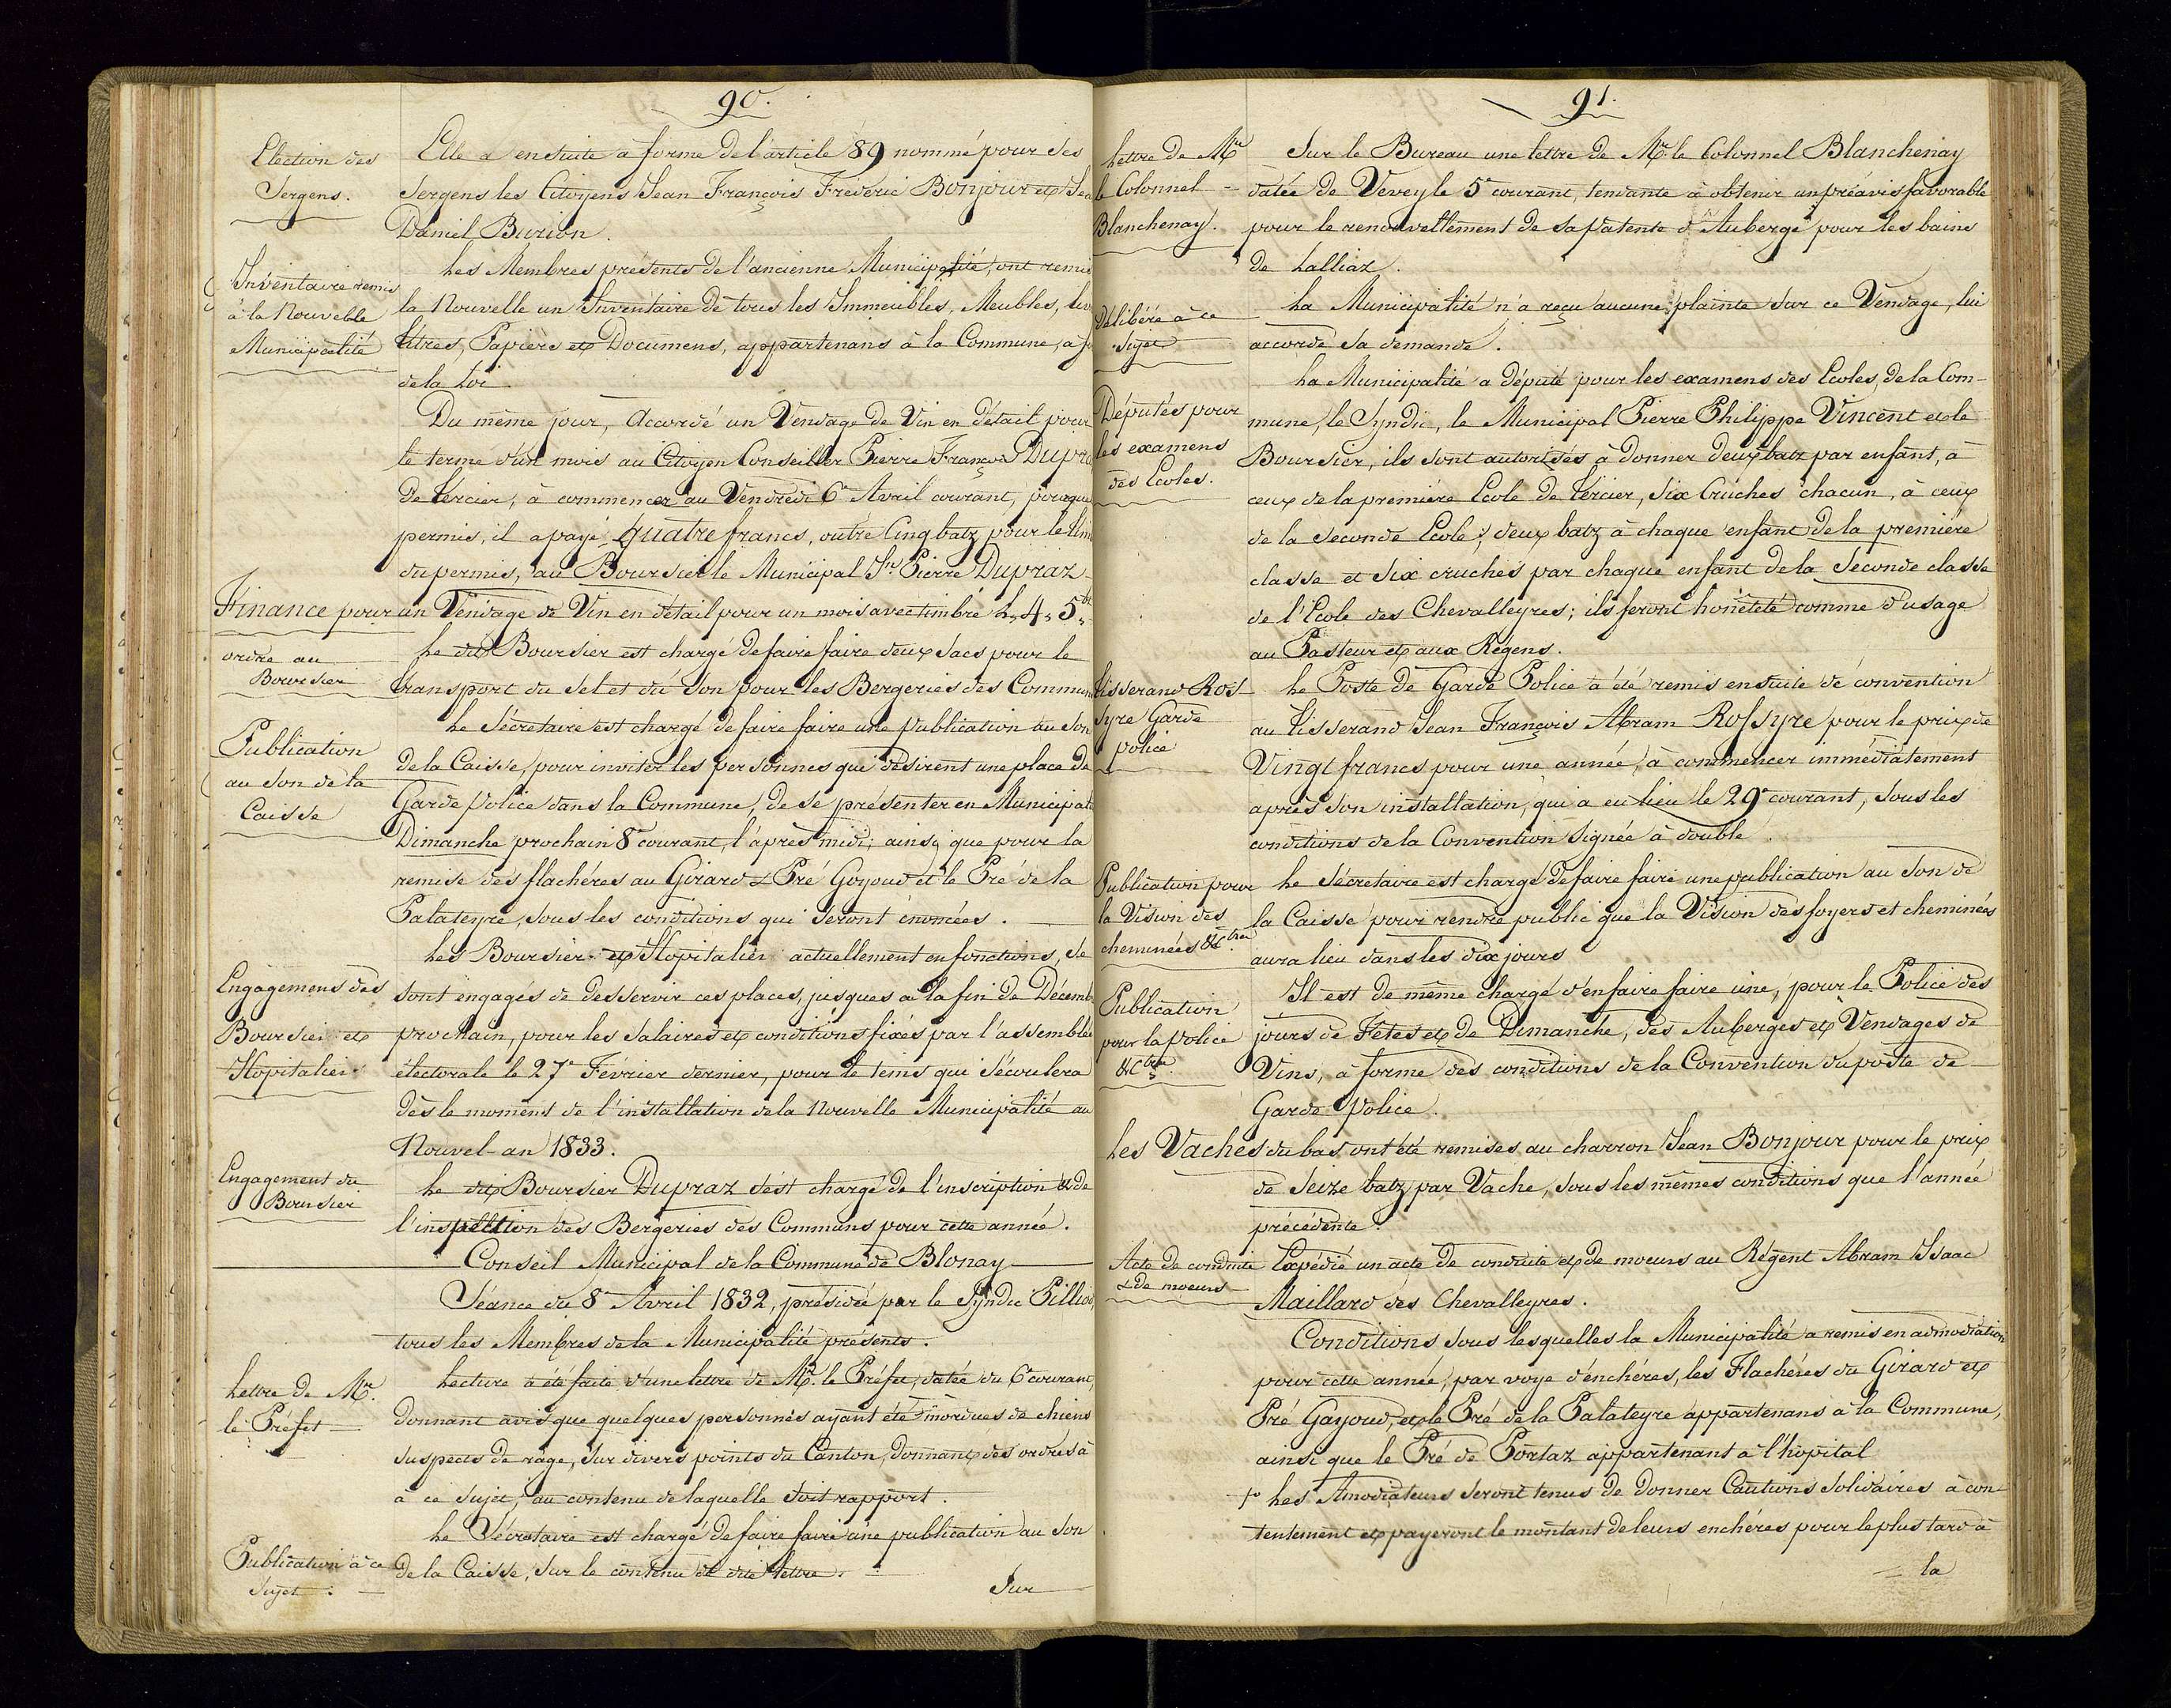 90.
Election des
Sergens.
Elle a ensuite a forme de l'article 89 nommé pour ses
Sergens les Citoyens Jean François Fréderic Bonjour et Jea
Daniel Burion.
Inventaire remis
à la Nouvelle
Municipalité
Les Membres présents de l'ancienne Municipalité, ont remis
la Nouvelle un Inventaire de tous les Immeubles, Meubles,
titres, Papiers et Documens, appartenans à la Commune, a
de la Loi
Du même jour, Accordé un Vendage de Vin en détail pour
le terme d'un mois au Citoyen Conseiller Pierre François Dupra
de Tercier, à commencer au Vendredi 6e Avril courant, pour que
permis, il a payé quatre francs, outre Cinq batz pour le tim
du permis, au Boursier le Municipal Jn Pierre Dupraz
Finance pour un Vendage de Vin en détail pour un mois avec timbre L. 4, 5 bz
ordre au
Boursier
Le dit Boursier est chargé de faire faire deux sacs pour le
transport du Sel et du Son pour les Bergeries des Commun
Publication
au son de la
Caisse
Le Sécretaire est chargé de faire faire une publication au Son
de la Caisse, pour inviter les personnes qui désirent une place de
Garde police dans la Commune, de se présenter en Municipal
Dimanche prochain 8e courant, l'après midi; ainsi que pour la
remise des flachéres au Girard & Pré Goyoud et le Pré de la
Palateyre, sous les conditions qui seront énoncées.
Engagemens des
Boursier et
Hopitalier
Les Boursier et Hopitalier actuellement en fonctions, se
sont engagés de desservir ces places, jusques a la fin de Décemb
prochain, pour les Salaires et conditions fixés par l'assemblée
électorale le 27e Février dernier, pour le tems qui s'écoulera
dès le moment de l'installation de la Nouvelle Municipalité au
Nouvel-an 1833.
Engagement du
Boursier
Le dit Boursier Dupraz s'est chargé de l'inscription & de
l'inspection des Bergeries des Communs pour cette année.
Conseil Municipal de la Commune de Blonay
Séance du 8e Avril 1832, présidée par le Syndic Pilliod,
tous les Membres de la Municipalité présents.
Lettre de Mr.
le Préfet
Lecture a été faite d'une lettre de Mr. le Préfet, datée du 6e courant,
donnant avis que quelques personnes ayant été mordues de chiens
suspects de rage, sur divers points du Canton, donnant des ordres à
à ce sujet, au contenu de laquelle soit rapport.
Publication à ce
sujet.
Le Sécretaire est chargé de faire faire une publication au Son
de la Caisse, sur le contenu de dite lettre.
Sur
91.
Lettre de Mr
le Colonnel
Blanchenay.
Sur le Bureau une lettre de Mr. le Colonnel Blanchenay
datée de Vevey le 5e courant, tendante à obtenir un préavis favorable
pour le renouvellement de sa patente d'Auberge pour les bains
de Lalliaz.
Délibéré à ce
sujet
La Municipalité n'a reçu aucune plainte sur ce Vendage, lui
accorde sa demande.
Députés pour
les examens
des Ecoles.
La Municipalité a député pour les examens des Ecoles, de la Com-
mune, le Syndic, le Municipal Pierre Philippe Vincent et le
Boursier, ils sont autorisés à donner deux batz par enfant, à
ceux de la première Ecole de Tercier, Six Cruches chacun, à ceux
de la seconde Ecole; deux batz à chaque enfant de la première
classe et six cruches par chaque enfant de la Seconde classe
de l'Ecole des Chevalleyres; ils feront honêteté comme d'usage
au Pasteur et aux Régens.
Tisserand Ros
syre Garde
police
Le Poste de Garde Police a été remis ensuite de convention
au Tisserand Jean François Abram Rossyre pour le prix de
Vingt francs pour une année, à commencer immédiatement
après son installation, qui a eu lieu le 29e courant, sous les
conditions de la Convention signée à double.
Publication pour
la Vision des
cheminées &Ctra
Le Sécretaire est chargé de faire faire une publication au Son de
la Caisse pour rendre public que la Vision des foyers et cheminées
aura lieu dans les dix jours
Publication
pour la police
&Ctra
Il est de même chargé d'en faire faire une, pour la Police des
jours de Fêtes et de Dimanche, des Auberges et Vendages de
Vins, a forme des conditions de la Convention du poste de
Garde Police.
Les Vaches du bas ont été remises au charron Jean Bonjour pour le prix
de Seize batz par Vache, sous les mêmes conditions que l'année
précédente.
Acte de conduite
& de moeurs
Expédié un acte de conduite et de moeurs au Régent Abram Isaac
Maillard des Chevalleyres.
Conditions sous lesquelles la Municipalité a remis en admodiation
pour cette année, par voye d'enchéres, les Flachéres du Girard et
Pré Gayoud, et le Pré de la Palateyre appartenans à la Commune,
ainsi que le Pré de Portaz appartenant à l'hopital
1o Les Amodiateurs seront tenus de donner Cautions Solidaires à con-
tentement et payeront le montant de leurs enchéres pour le plus tard à
la